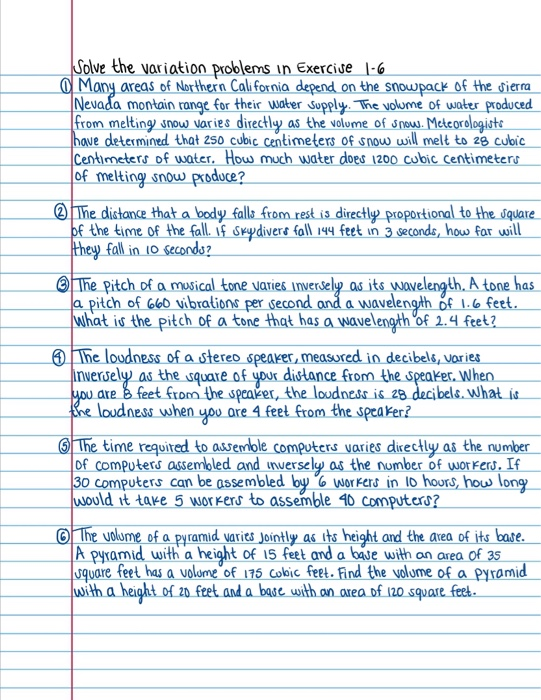 Solve the variation problems in Exercise 1-6
① Many areas of Northern California depend on the snowpack of the sierra
Nevada montain range for their water supply. The volume of water produced
from melting snow varies directly as the volume of snow. Meteorologists
have determined that 250 cubic centimeters of snow will melt to 28 cubic
centimeters of water. How much water does 1200 cubic centimeters
of melting snow produce?
② The distance that a body falls from rest is directly proportional to the square
of the time of the fall. if skydivers fall 144 feet in 3 seconds, how far will
they fall in 10 seconds?
③ The pitch of a musical tone varies inversely as its wavelength. A tone has
a pitch of 660 vibrations per second and a wavelength of 1.6 feet.
What is the pitch of a tone that has a wavelength of 2.4 feet?
④ The loudness of a stereo speaker, measured in decibels, varies
inversely as the square of your distance from the speaker. When
you are 8 feet from the speaker, the loudness is 28 decibels. What is
the loudness when you are 4 feet from the speaker?
⑤ The time required to assemble computers varies directly as the number
of computers assembled and inversely as the number of workers. If
30 computers can be assembled by 6 workers in 10 hours, how long
would it take 5 workers to assemble 40 computers?
⑥ The volume of a pyramid varies jointly as its height and the area of its base.
A pyramid with a height of 15 feet and a base with an area of 35
square feet has a volume of 175 cubic feet. Find the volume of a pyramid
with a height of 20 feet and a base with an area of 120 square feet.